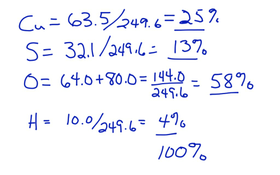 Cu = 63.5/249.6 = 25%
S = 32.1/249.6 = 13%
O = 64.0+80.0 = 144.0/249.6 = 58%
H = 10.0/249.6 = 4%
100%